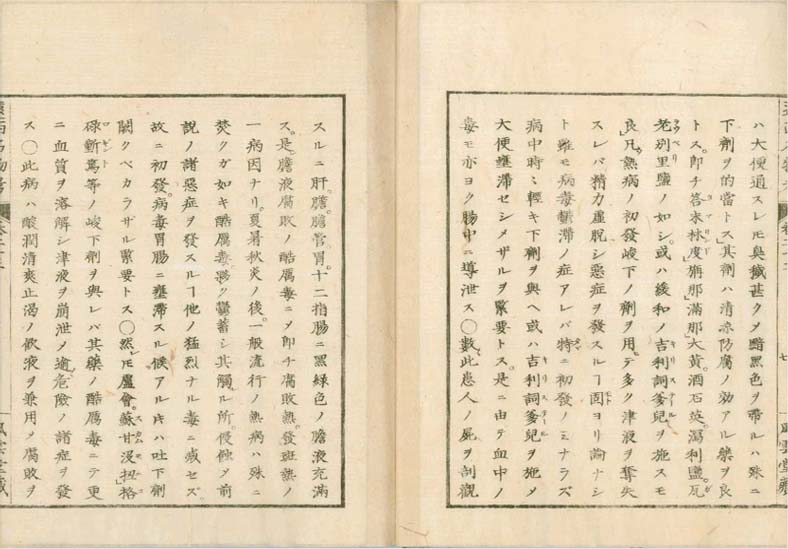 ハ大便通スレ𪜈臭穢甚クメ暗黑色ヲ帶ルハ殊ニ
下劑ヲ的當トス其劑ハ清凉防腐ノ効アル藥ヲ良
トス。即チ荅末林度。旃那。滿那。大黃。酒石英。瀉利鹽。瓦
老別里鹽ノ如シ。或ハ緩和ノ吉利詞爹兒ヲ施スモ
良。凡熱病ノ初發峻下ノ劑ヲ用テ多ク津液ヲ奪失
スレバ精力虛脫シ惡症ヲ發スルヿ固ヨリ論ナシ
ト雖モ病毒鬱滯ノ症アレバ特ニ初發ノミナラズ
病中時々輕キ下劑ヲ與ヘ或ハ吉利詞爹兒ヲ施メ
大便壅滯セシメザルヲ緊要トス。是ニ由テ血中ノ
毒モ亦ヨク腸中ニ導泄ス〇數此患人ノ屍ヲ剖觀
七
風雲堂藏
スルニ肝。膽。膽管。胃。十二指腸ニ黑綠色ノ膽液充滿
ス。是膽液腐敗ノ酷厲毒ニメ即チ腐敗熱。發斑熱ノ
一病因ナリ。夏暑秋炎ノ後。一般流行ノ熱病ハ殊ニ
焚クガ如キ酷厲毒夥ク欝蓄シ其觸ル所。侵蝕メ前
說ノ諸惡症ヲ發スルヿ他ノ猛烈ナル毒ニ减セズ。
故ニ初發。病毒胃腸ニ壅滯スル候アル片ハ吐下劑
闕クベカラザル緊要トス〇然𪜈蘆會。蘇甘没扭
碌斳篤等ノ峻下劑ヲ與レバ其藥ノ酷厲毒ニテ更
ニ血質ヲ溶解シ津液ヲ崩泄メ逾危險ノ諸症ヲ發
ス〇此病ハ酸潤清爽止渴ノ飲液ヲ兼用メ腐敗ヲ
風雲堂藏